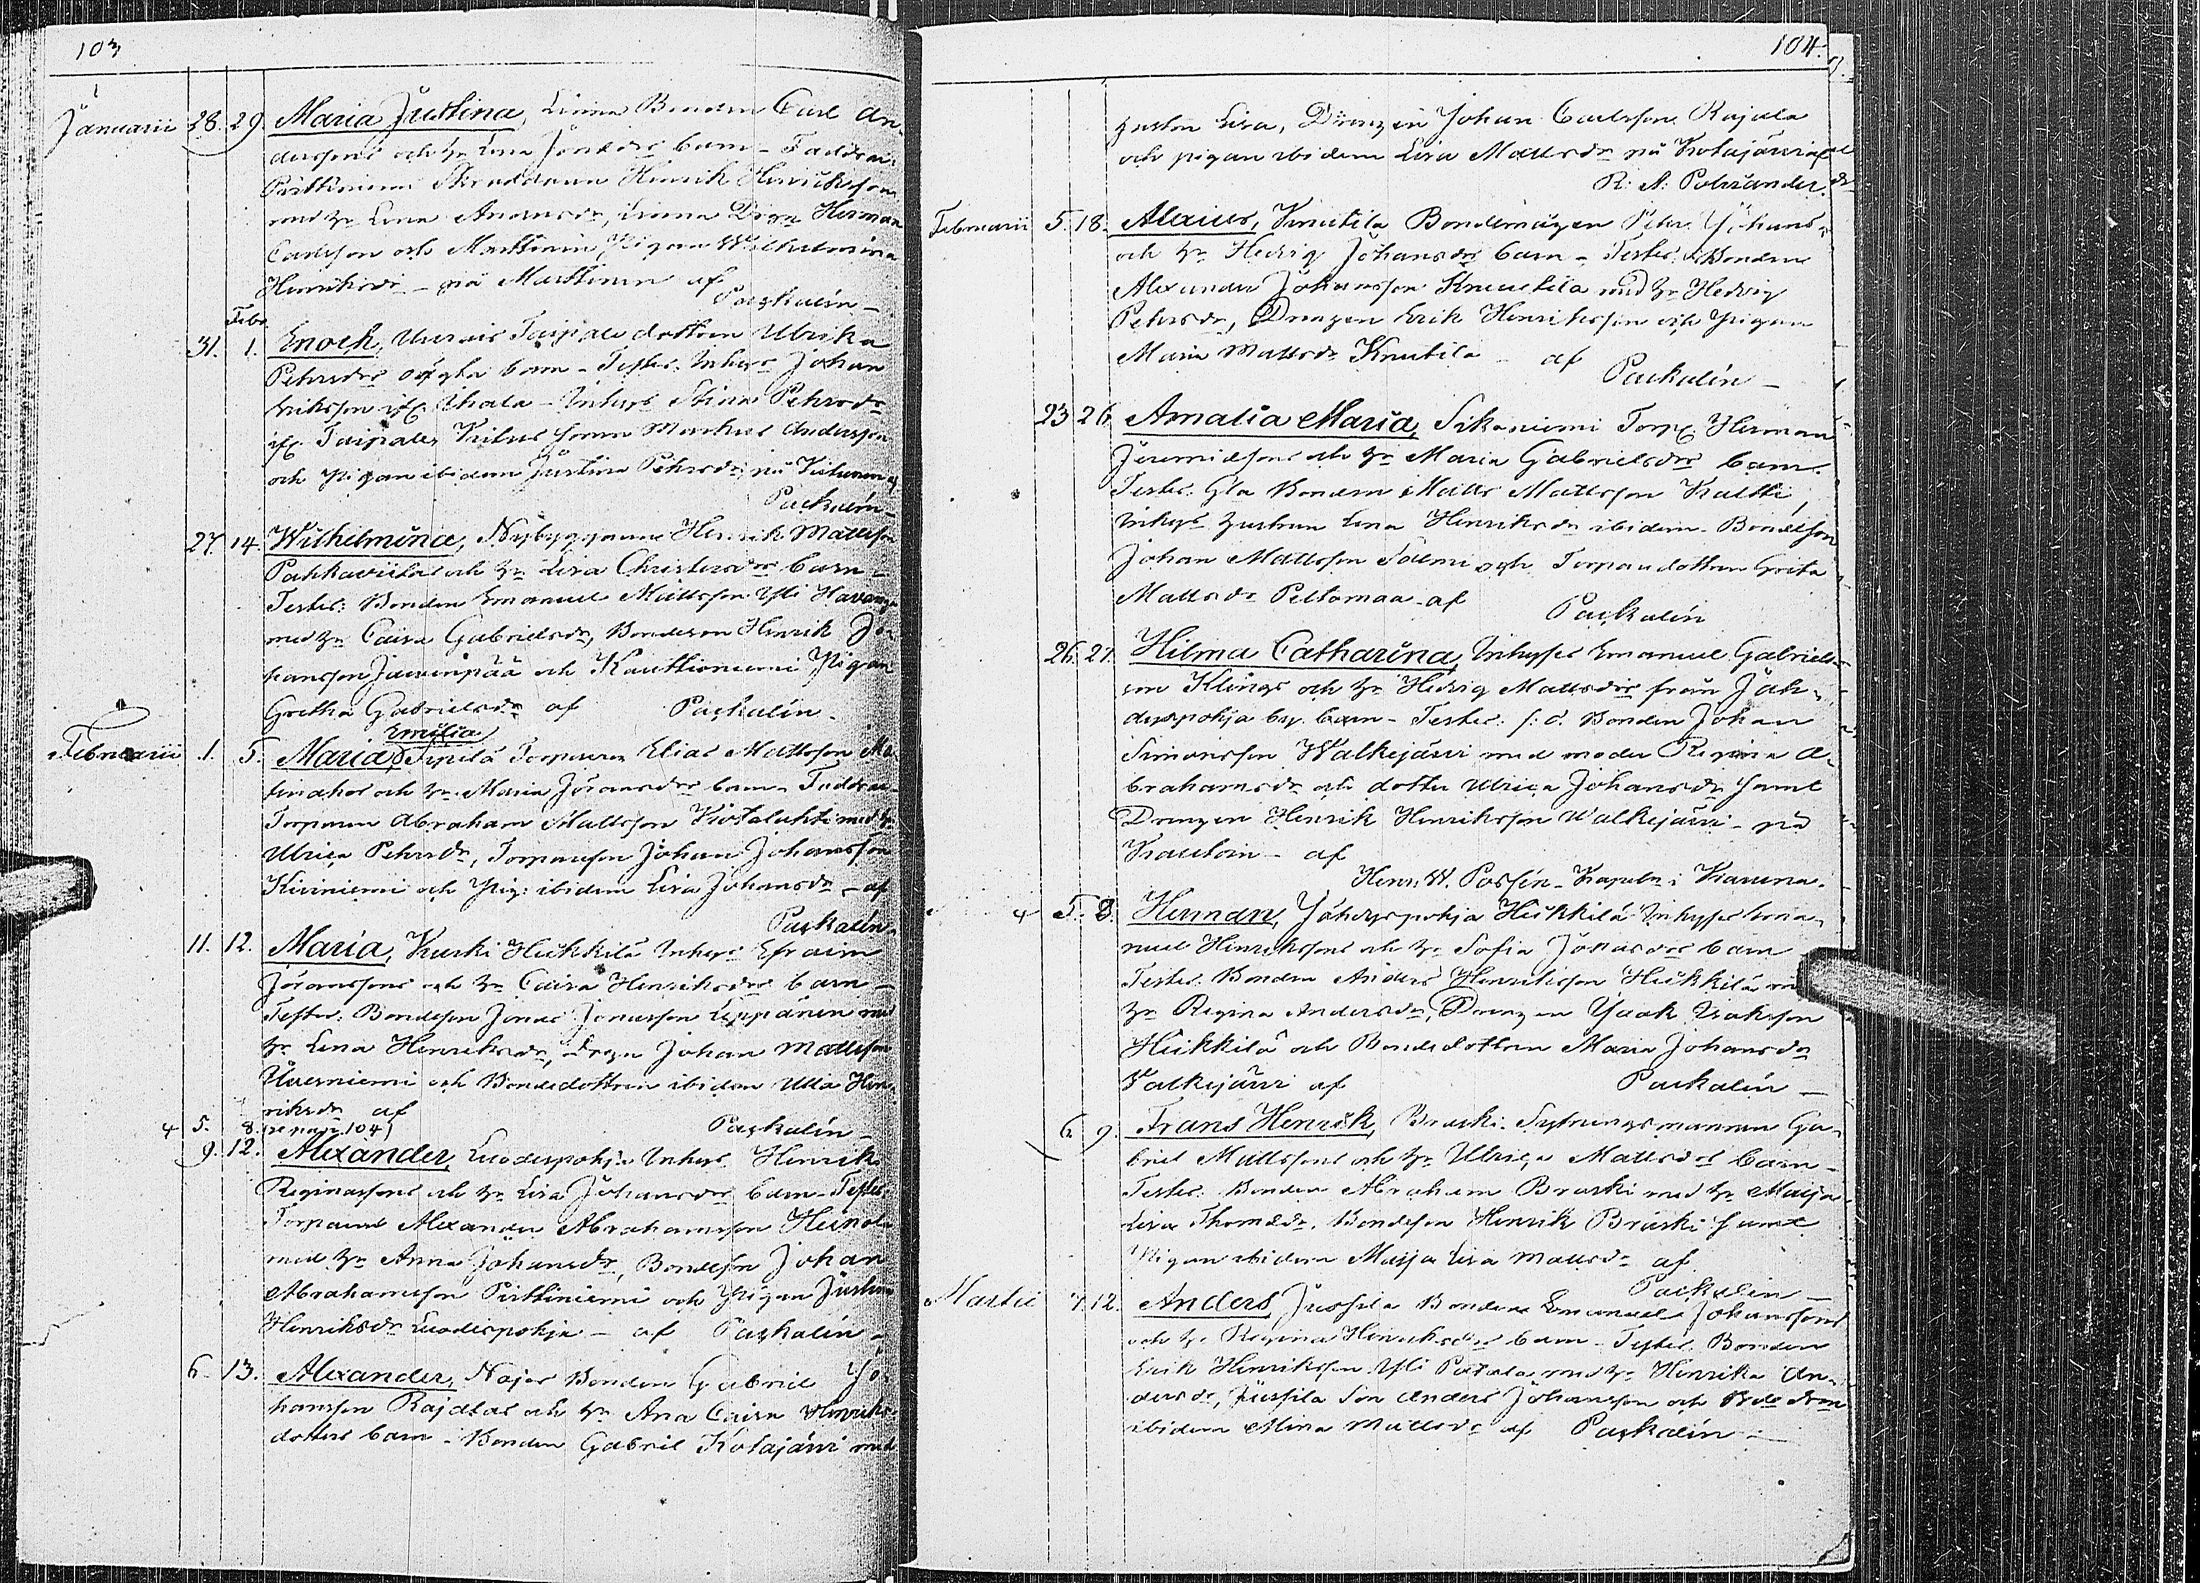 103
Januarii 28. 29. Maria Justina, Linna Bonden Carl An-
derssons och h. Lena Jonædrs barn - Faddrar
Pirttiniemi Skräddaren Henrik Henriksson
med h. Lena Andersdr, Linna Drgn Herman
Carlsson och Marttinen Pigan Wilhelmina
Henriksdr - på Marttinen af
Paskalin -
Febr.
31. 1. Enoch, Taipale dottren Ulrika
Petersdrs oägta barn - Testes: Inhys Johan
Eriksson Uhala - Inhys Stina Pehrsdr
Taipale, son Markus Andersson
och Pigan ibidem Justina Pehrsdr, på af
Paskalin -
27. 14. Wilhelmina, Nybyggaren Henrik Mattsson
Pahkaviitas och h. Lisa Christersdrs barn -
Testes: Bonden Emanuel Mattsson Yli
med h. Caisa Gabrielsdr, Bondeson Henrik Jo-
hansson Jaurinpää och Kauttioniemi Pigan
Gretha Gabrielsdr af Paskalin -
Emilia
Februarii 1. 5. Maria, Sipilä Torparen Elias Mattsson
och h. Maria Jöransdrs barn - Faddrar
Torparen Abraham Mattsson Kiotalahti med h.
Ulrica Pehrsdr, Torpareson Johan Johansson
Kiviniemi och Pig: ibidem Lisa Johansdr - af
Paskalin -
11. 12. Maria, Kuuski Heikkilä Inhys Efraim
Jöranssons och h. Caisa Henriksdrs barn -
Testes: Bondeson Jonas Jonasson Leppänen med
h. Lena Henriksdr, Drgn Johan Mattsson
Uusniemi och Bondedottren ibidem Ulla Hen-
riksdr af
Paskalin -
4 5. 8. (se pag. 104)
9. 12. Alexander, Luodespohja Inhys Henrik
Reginassons och h. Lisa Johansdrs barn - Testes:
Torparen Alexander Abrahamsson Heinola
med h. Anna Johansdr, Bondeson Johan
Abrahamsson Pirttiniemi och Pigan Justina
Henriksdr Luodespohja - af Paskalin -
6. 13. Alexander, Najos Bonden Gabriel Jo-
hansson Rajalas och h. Ana Caisa Henriks-
dotters barn - Bonden Gabriel Kotajärvi med
104.
hustru Lisa, Drängen Johan Carlsson Rajala
och pigan ibidem Lisa Mattsdr på Kotajärvi af
R: A: Polviander.
Februarii 5. 18. Alaius, Knutila Bondemågen Petter Johans-
och h. Hedvig Johansdrs barn - Testes: Bonden
Alexander Johansson Knuutila med h. Hedvig
Pehrsdr, Drengen Erik Henriksson och Pigan
Maria Mattsdr Knutila - af
Paskalin -
23 26. Amalia Maria, Sikaniemi Torp. Herman
Jeremiassons och h. Maria Gabrielsdrs barn.
Testes: Gla Bonden Matts Mattsson Kaltti,
Inhys hustrun Lena Henriksdr ibidem. Bondeson
Johan Mattsson Salmi och Torparedottren Greta
Mattsdr Peltomaa - af
Paskalin
26. 27. Hilma Catharina, Inhyses Emanuel Gabriels-
son Klings och h. Hedvig Mattsdrs från Jäh-
dyspohja by. barn - Testes: f: d. Bonden Johan
Simonsson Walkejärvi med moder Regina A-
brahamsdr och dotter Ulrica Johansdr samt
Drengen Henrik Henriksson Walkejärvi - på
Krautoin - af
Henr. W. Possén - Kapeln i Karuna.
4 5. 8. Herman, Jähdyspohja Heikkilä Inhyses Ema-
nuel Henrikssons och h. Sofia Jonasdrs barn
Testes: Bonden Anders Henriksson Heikkilä med
h. Regina Andersdr, Drengen Isaak Isaksson
Heikkilä och Bondedottren Maria Johansdr
Valkejärvi af Paskalin -
6. 9. Frans Henrik, Braski. Sytningsmannen Ga-
briel Mattssons och h. Ulrica Mattsdrs barn -
Testes: Bonden Abraham Braski med h. Maija
Lisa Thomædr, Bondeson Henrik Braski samt
Pigan ibidem Maija Lisa Mattsdr af
Paskalin -
Martii 7. 12. Anders, Jussila Bonden Emanuel Johanssons
och h. Regina Henriksdrs barn - Testes: Bonden
Erik Henriksson Yli Patala med h. Henrika An-
dersdr, Jussila Son Anders Johansson och
ibidem Mina Mattsdr af Paskalin -